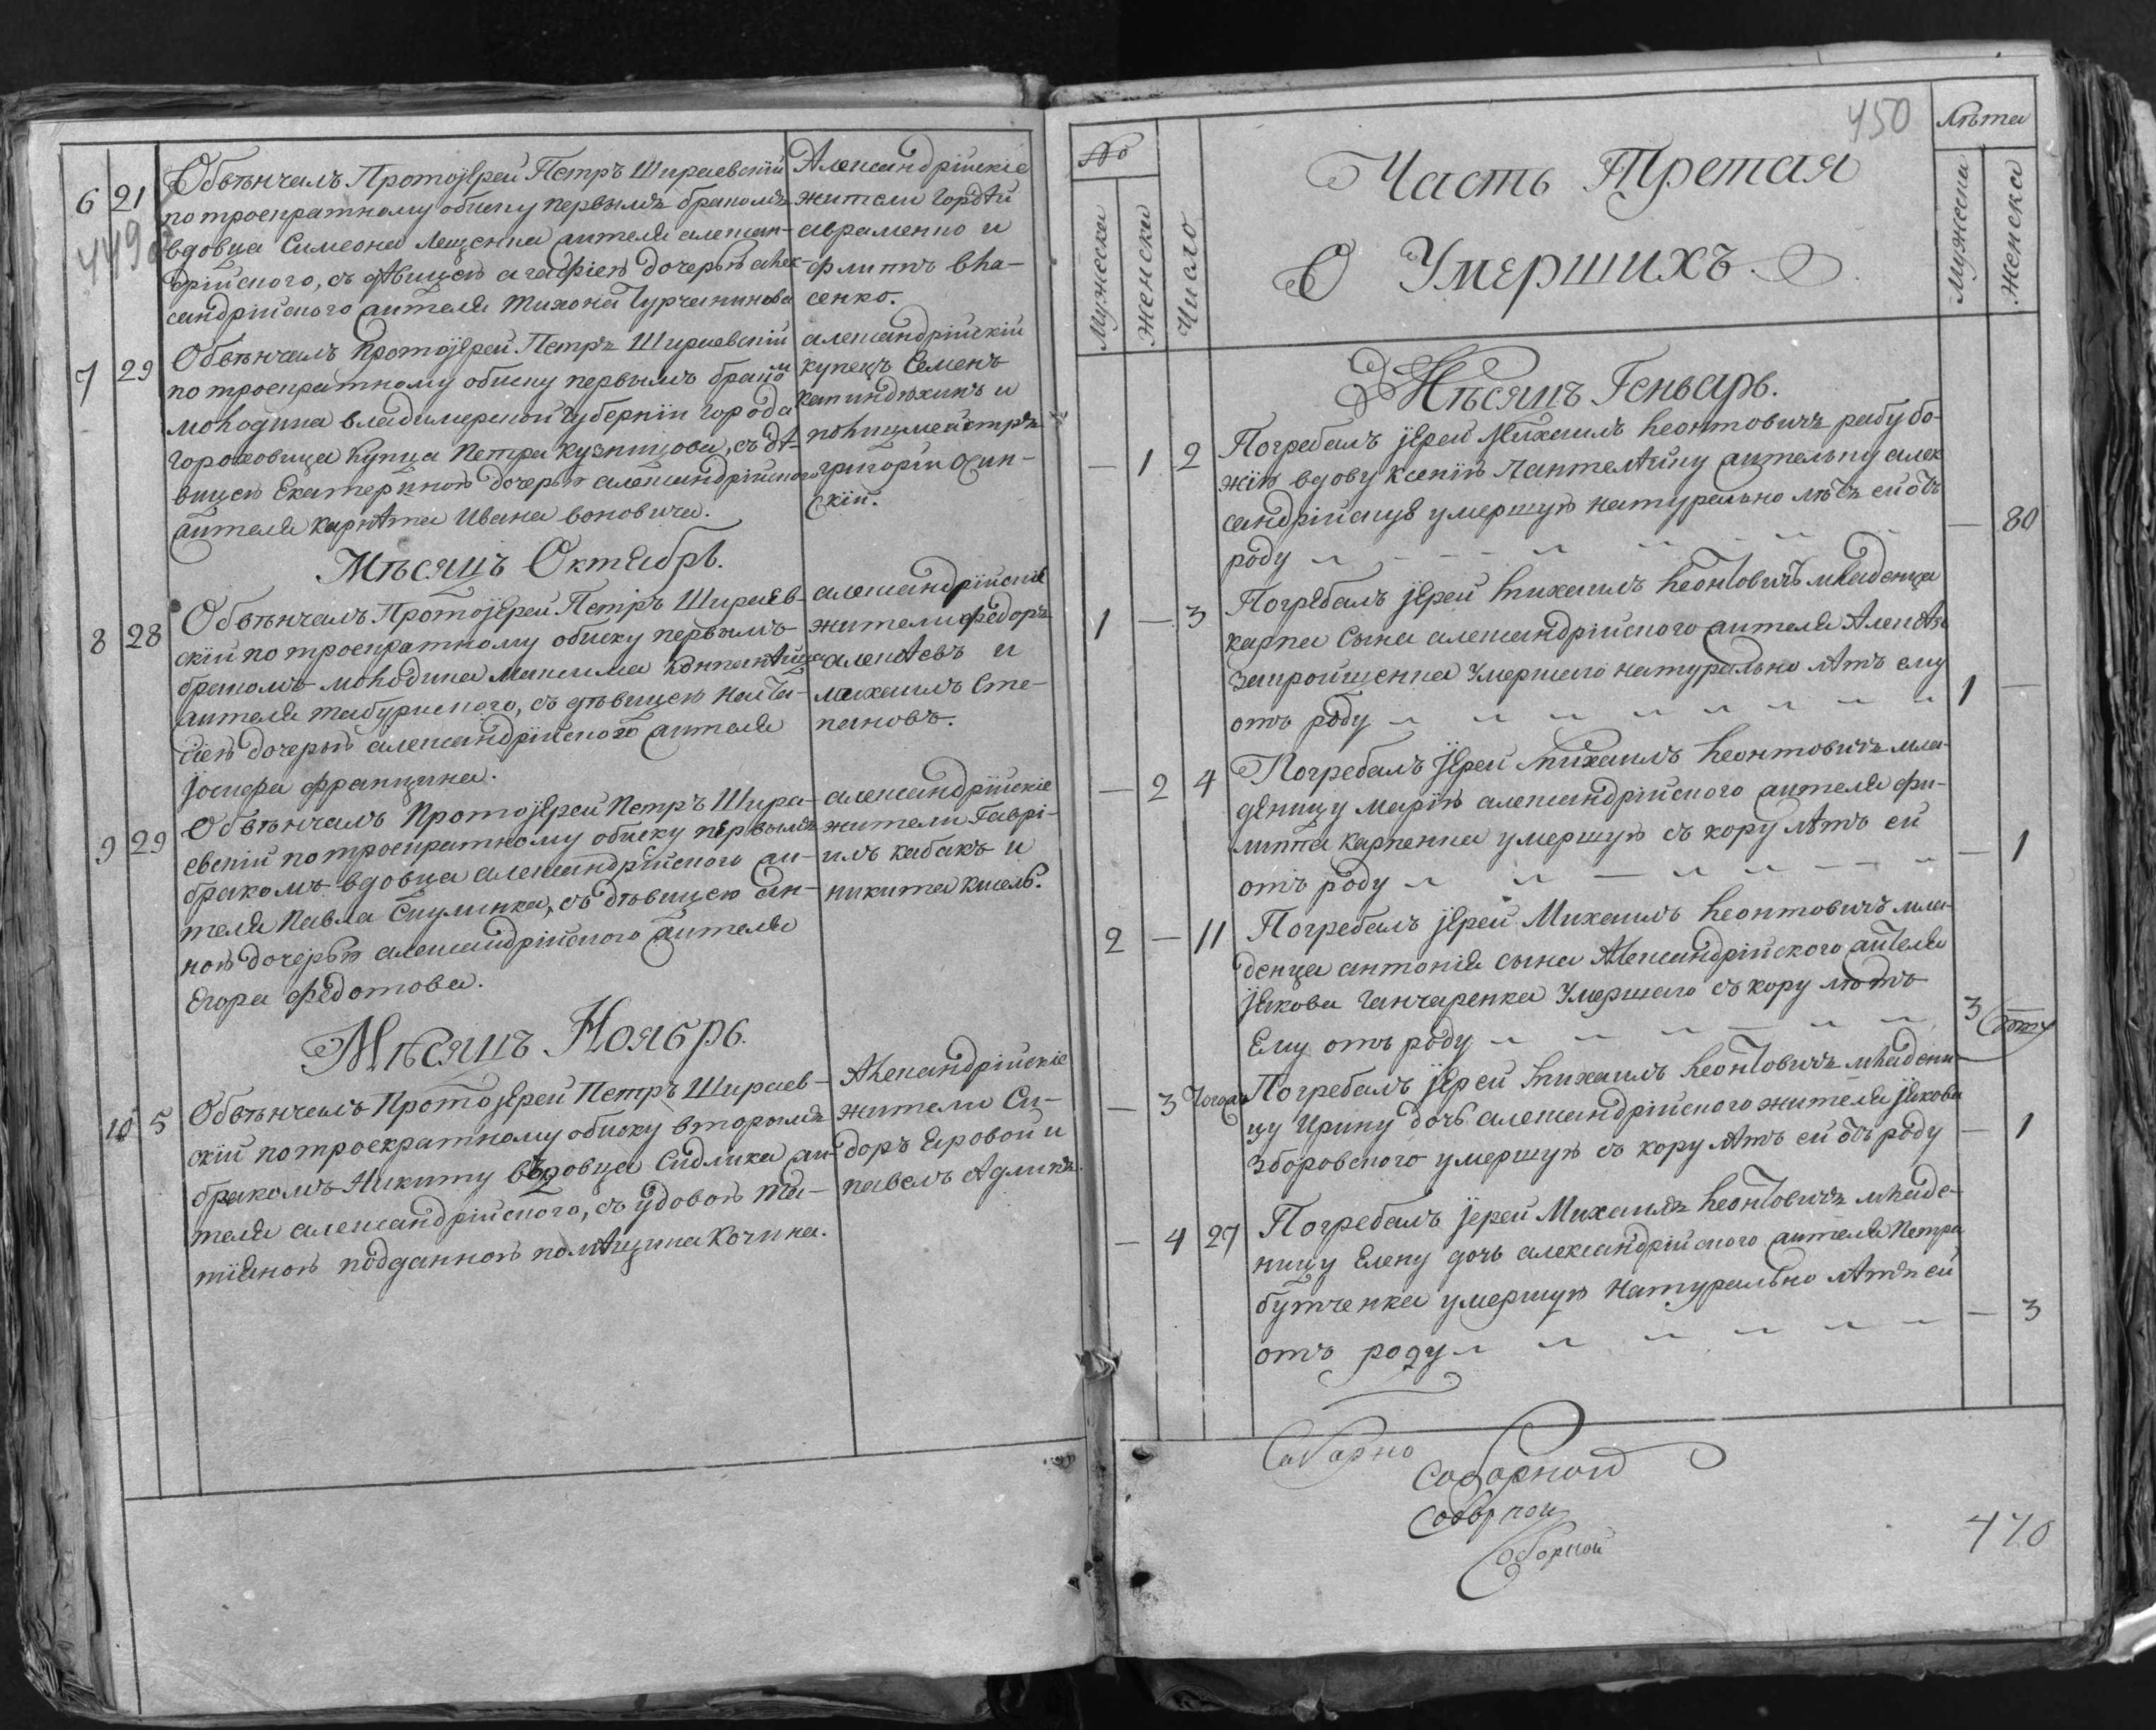 449
6 21 Обвѣнчалъ Протоіерей Петръ Шираевскій
по троекратному обиску первымъ бракомъ
вдовца Симеона Лещенка жителя алексан-
дрійского, съ дѣвицею агафіею дочерью алек-
сандрійского жителя тихона Турчанинова
Александрійскіе
жители Гордѣй
авраменко и
филиппъ вла-
сенко.
7 29 Обвѣнчалъ Протоіерей Петръ Шираевскій
по троекратному обиску первымъ браком
молодика владимерской губерніи города
гороховца купца Петра кузницова, съ дѣ-
вицею Екатериною дочерью александрійского
жителя карнѣта Ивана воновича.
александрійскій
купецъ Семенъ
и
полицмейстръ
григорій Осин-
скій.
Мѣсяцъ Октябрь.
8 28 Обвѣнчалъ Протоіерей Петръ Шираев-
скій по троекратному обиску первымъ
бракомъ молодика Максима
жителя табуриского, съ дѣвицею наста-
сіею дочерью александрійского жителя
Іосифа францика.
александрійскіе
жители федоръ
алексѣевъ и
михаилъ Сте-
пановъ.
9 29 Обвѣнчалъ Протоіерей Петръ Шира-
евскій по троекратному обиску первымъ
бракомъ вдовца александрійского жи-
теля Павла Скулинка, съ дѣвицею ан-
ною дочерью александрійского жителя
Егора федотова.
александрійскіе
жители Гаврі-
илъ кабакъ и
никита кисель.
Мѣсяцъ Ноябрь.
10 5 Обвѣнчалъ Протоіерей Петръ Шираев-
скій по троекратному обиску вторымъ
бракомъ Никиту вдовца Сидлика жи-
теля александрійского, съ удовою та-
тіяною подданною помѣщика Кочина.
Александрійскіе
жители Си-
доръ Яровой и
павелъ Адамъ.
450
№
Мужеска
Женска
Число
Часть Третая
О Умершихъ
Лѣта
Мужеска
Женска
Мѣсяцъ Геньварь.
— 1 2 Погребалъ іерей Михаилъ Леонтовичъ рабу бо-
жію вдову Ксенію Пантелѣйну жительку алек
сандрійскую умершую натурально лѣтъ ей отъ
роду — 80
1 — 3 Погребалъ іерей Михаилъ Леонтовичъ младенца
карпа Сына александрійского жителя Алексѣя
Закройщенка Умершаго натурально лѣтъ ему
отъ роду 1 —
— 2 4 Погребалъ Іерей Михаилъ Леонтовичъ мла-
деницу марію александрійского жителя фи-
липпа карпенка умершую съ кору лѣтъ ей
отъ роду — 1
2 — 11 Погребалъ іерей Михаилъ Леонтовичъ мла-
денца антонія сына Александрійского жителя
Іякова Ганчаренка Умершаго съ кору лѣтъ
Ему отъ роду 3
— 3 Тогожъ Погребалъ Іерей Михаилъ Леонтовичъ младени-
цу Ирину дочь александрійского жителя Іякова
Зборовского умершую съ кору лѣтъ ей отъ роду — 1
— 4 27 Погребалъ іерей Михаилъ Леонтовичъ младе-
ницу Елену дочь александрійского жителя Петра
бутченка умершую натурально лѣтъ ей
отъ роду — 3
Соборно
Соборной
Соборной
Соборной
470